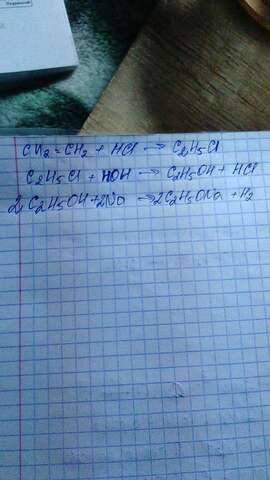 CH2=CH2 + HCl → C2H5Cl
C2H5Cl + HOH → C2H5OH + HCl
2C2H5OH+2Na → 2C2H5ONa + H2